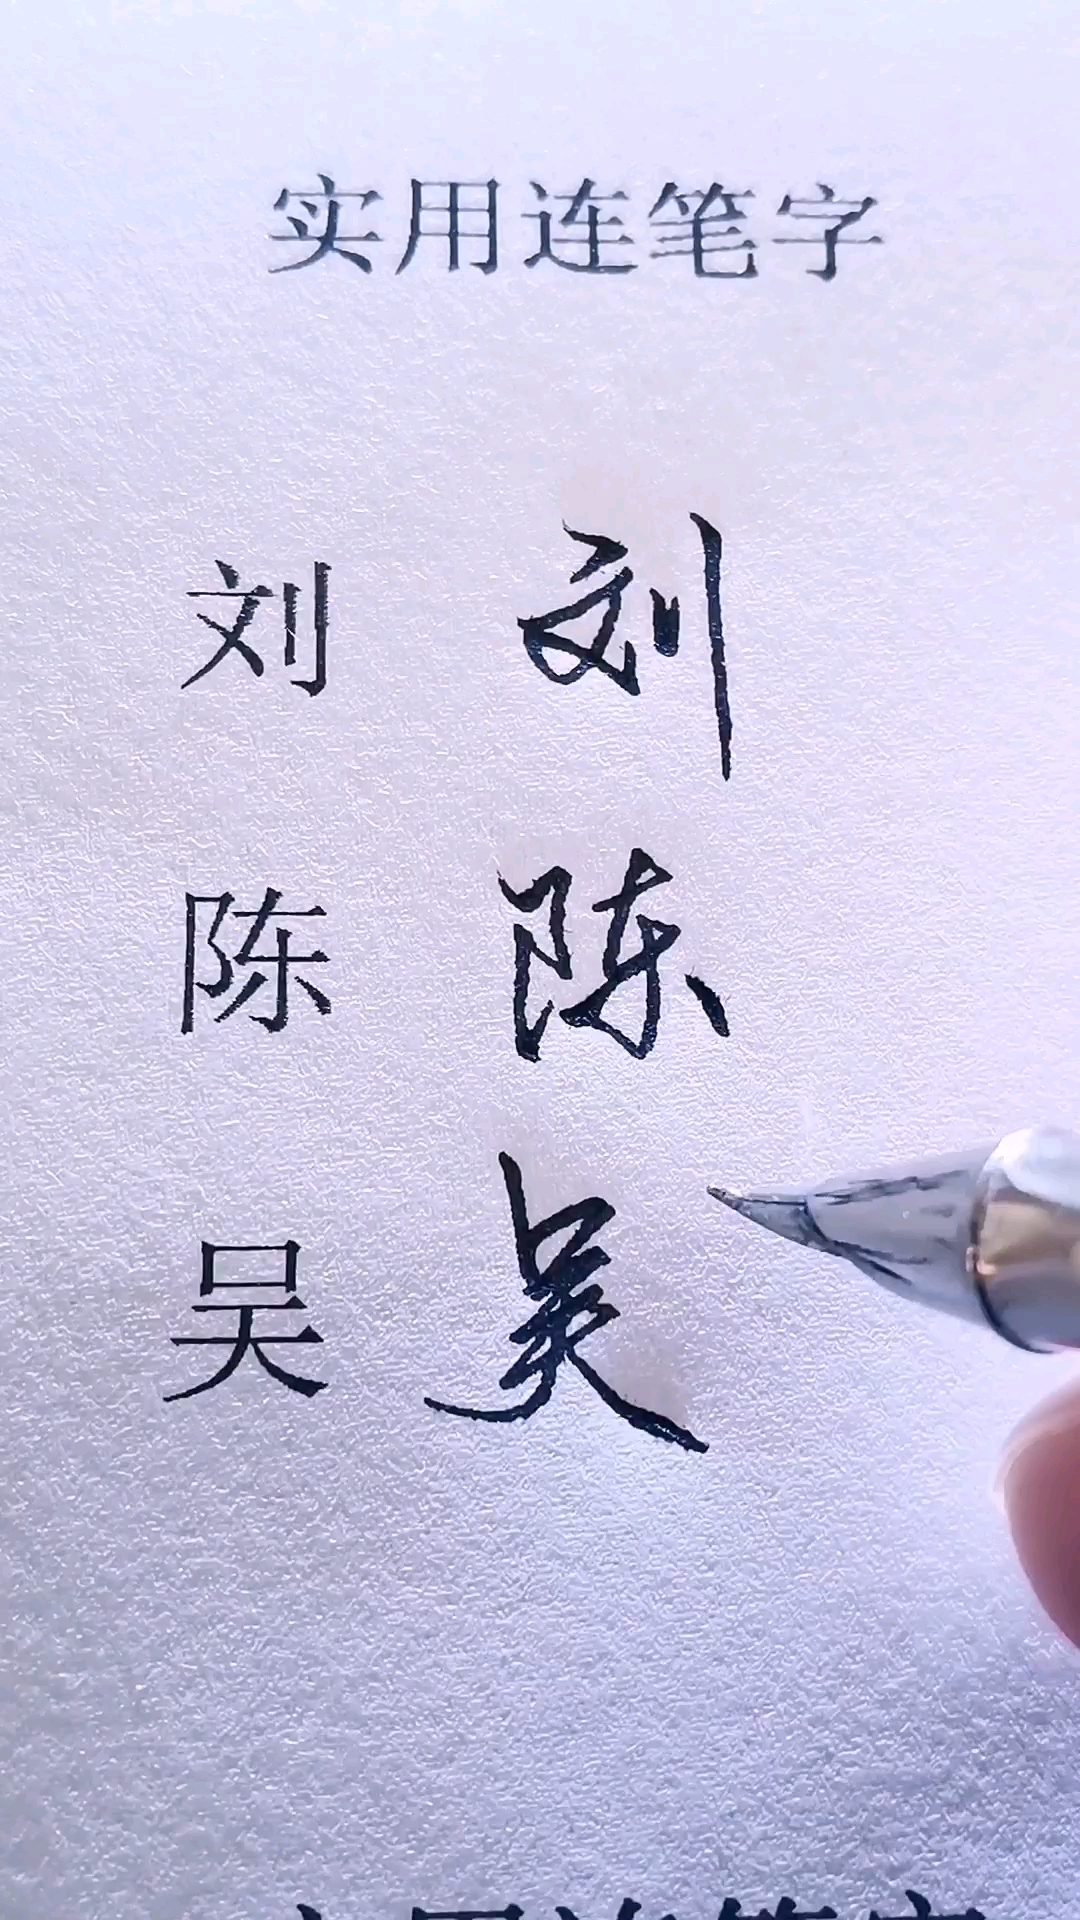 实用连笔字
刘 刘
陈 陈
吴 吴